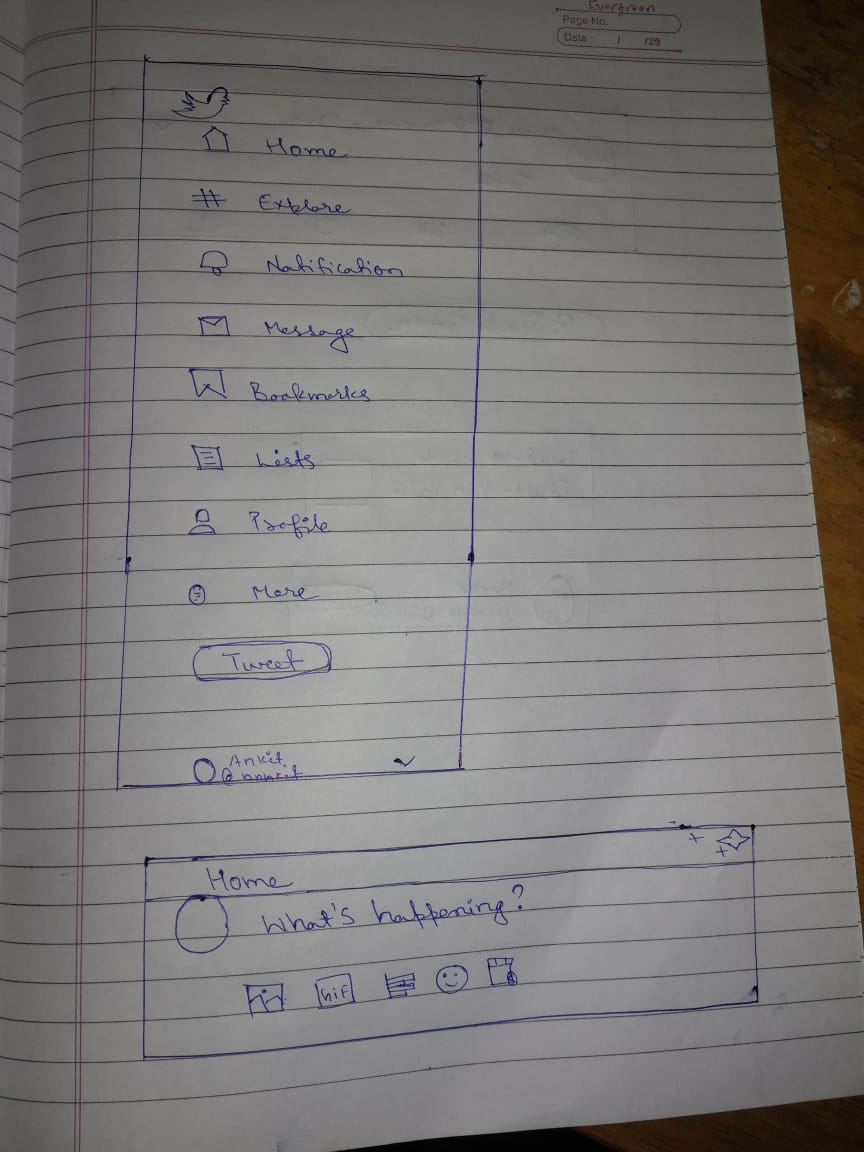 Evergreen
Page No.
Date : / /20
Home
# Explore
Notification
Message
Bookmarks
Lists
Profile
More
Tweet
Ankit
Home
What's happening?
GIF